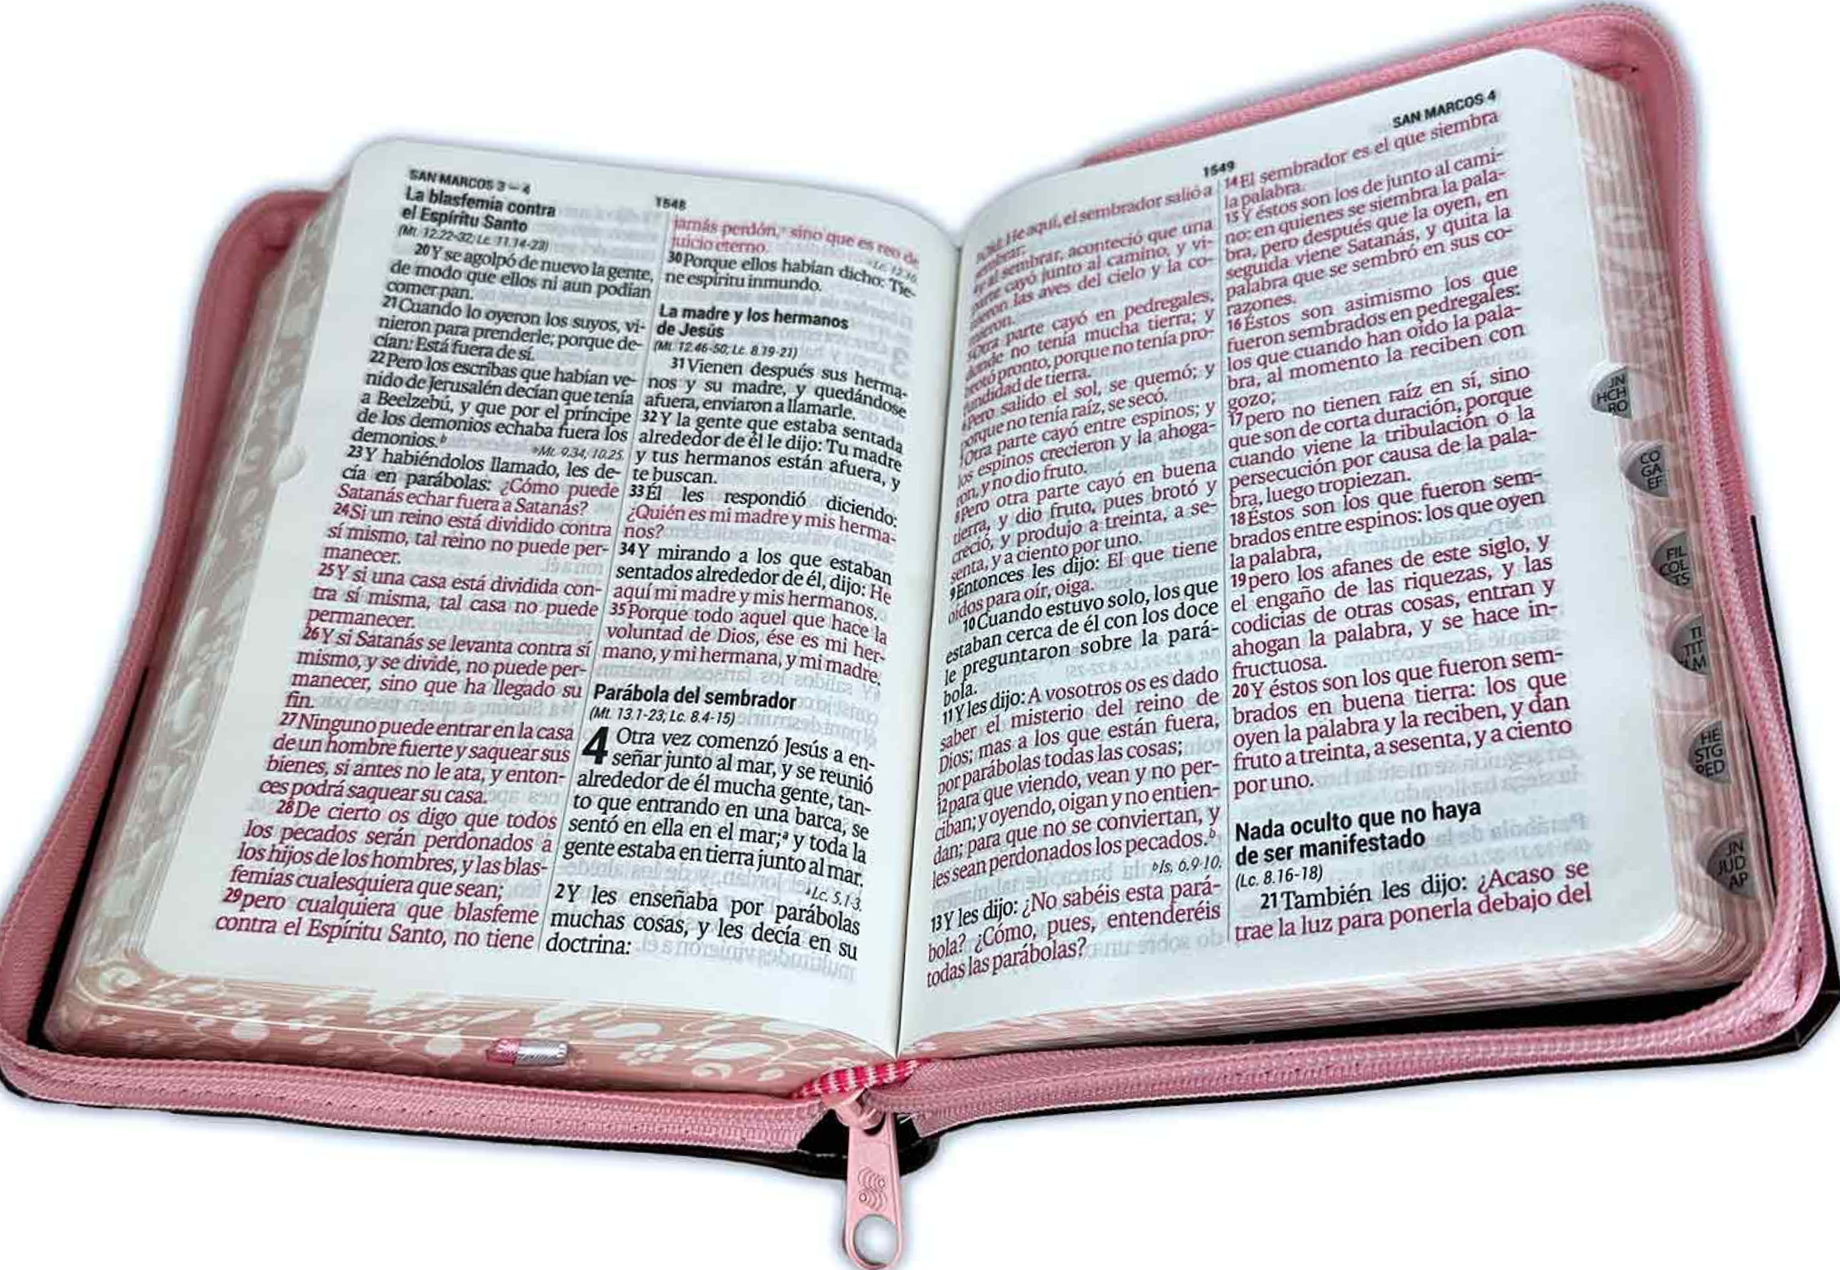 SAN MARCOS 3 – 4
1548
La blasfemia contra
el Espíritu Santo
(Mt. 12.22-32; Lc. 11.14-23)
20Y se agolpó de nuevo la gente,
de modo que ellos ni aun podían
comer pan.
21Cuando lo oyeron los suyos, vi-
nieron para prenderle; porque de-
cían: Está fuera de sí.
22Pero los escribas que habían ve-
nido de Jerusalén decían que tenía
a Beelzebú, y que por el príncipe
de los demonios echaba fuera los
demonios.ᵇ
ᵇMt. 9.34; 10.25.
23Y habiéndolos llamado, les de-
cía en parábolas: ¿Cómo puede
Satanás echar fuera a Satanás?
24Si un reino está dividido contra
sí mismo, tal reino no puede per-
manecer.
25Y si una casa está dividida con-
tra sí misma, tal casa no puede
permanecer.
26Y si Satanás se levanta contra sí
mismo, y se divide, no puede per-
manecer, sino que ha llegado su
fin.
27Ninguno puede entrar en la casa
de un hombre fuerte y saquear sus
bienes, si antes no le ata, y enton-
ces podrá saquear su casa.
28De cierto os digo que todos
los pecados serán perdonados a
los hijos de los hombres, y las blas-
femias cualesquiera que sean;
29pero cualquiera que blasfeme
contra el Espíritu Santo, no tiene
jamás perdón,ᶜ sino que es reo de
juicio eterno.
ᶜLc. 12.10.
30Porque ellos habían dicho: Tie-
ne espíritu inmundo.
La madre y los hermanos
de Jesús
(Mt. 12.46-50; Lc. 8.19-21)
31Vienen después sus herma-
nos y su madre, y quedándose
afuera, enviaron a llamarle.
32Y la gente que estaba sentada
alrededor de él le dijo: Tu madre
y tus hermanos están afuera, y
te buscan.
33Él les respondió diciendo:
¿Quién es mi madre y mis herma-
nos?
34Y mirando a los que estaban
sentados alrededor de él, dijo: He
aquí mi madre y mis hermanos.
35Porque todo aquel que hace la
voluntad de Dios, ése es mi her-
mano, y mi hermana, y mi madre.
Parábola del sembrador
(Mt. 13.1-23; Lc. 8.4-15)
4 Otra vez comenzó Jesús a en-
señar junto al mar, y se reunió
alrededor de él mucha gente, tan-
to que entrando en una barca, se
sentó en ella en el mar;ᵃ y toda la
gente estaba en tierra junto al mar.
ᵃLc. 5.1-3.
2Y les enseñaba por parábolas
muchas cosas, y les decía en su
doctrina:
1549
SAN MARCOS 4
He aquí, el sembrador salió a
sembrar;
al sembrar, aconteció que una
parte cayó junto al camino, y vi-
nieron las aves del cielo y la co-
mieron.
5Otra parte cayó en pedregales,
donde no tenía mucha tierra; y
brotó pronto, porque no tenía pro-
fundidad de tierra.
6Pero salido el sol, se quemó; y
porque no tenía raíz, se secó.
7Otra parte cayó entre espinos; y
los espinos crecieron y la ahoga-
ron, y no dio fruto.
8Pero otra parte cayó en buena
tierra, y dio fruto, pues brotó y
creció, y produjo a treinta, a se-
senta, y a ciento por uno.
9Entonces les dijo: El que tiene
oídos para oír, oiga.
10Cuando estuvo solo, los que
estaban cerca de él con los doce
le preguntaron sobre la pará-
bola.
11Y les dijo: A vosotros os es dado
saber el misterio del reino de
Dios; mas a los que están fuera,
por parábolas todas las cosas;
12para que viendo, vean y no per-
ciban; y oyendo, oigan y no entien-
dan; para que no se conviertan, y
les sean perdonados los pecados.ᵇ
ᵇIs. 6.9-10.
13Y les dijo: ¿No sabéis esta pará-
bola? ¿Cómo, pues, entenderéis
todas las parábolas?
14El sembrador es el que siembra
la palabra.
15Y éstos son los de junto al cami-
no: en quienes se siembra la pala-
bra, pero después que la oyen, en
seguida viene Satanás, y quita la
palabra que se sembró en sus co-
razones.
16Éstos son asimismo los que
fueron sembrados en pedregales:
los que cuando han oído la pala-
bra, al momento la reciben con
gozo;
17pero no tienen raíz en sí, sino
que son de corta duración, porque
cuando viene la tribulación o la
persecución por causa de la pala-
bra, luego tropiezan.
18Éstos son los que fueron sem-
brados entre espinos: los que oyen
la palabra,
19pero los afanes de este siglo, y
el engaño de las riquezas, y las
codicias de otras cosas, entran y
ahogan la palabra, y se hace in-
fructuosa.
20Y éstos son los que fueron sem-
brados en buena tierra: los que
oyen la palabra y la reciben, y dan
fruto a treinta, a sesenta, y a ciento
por uno.
Nada oculto que no haya
de ser manifestado
(Lc. 8.16-18)
21También les dijo: ¿Acaso se
trae la luz para ponerla debajo del
JN
HCH
RO
CO
GA
EF
FIL
COL
TS
TI
TIT
FLM
HE
STG
PED
JN
JUD
AP